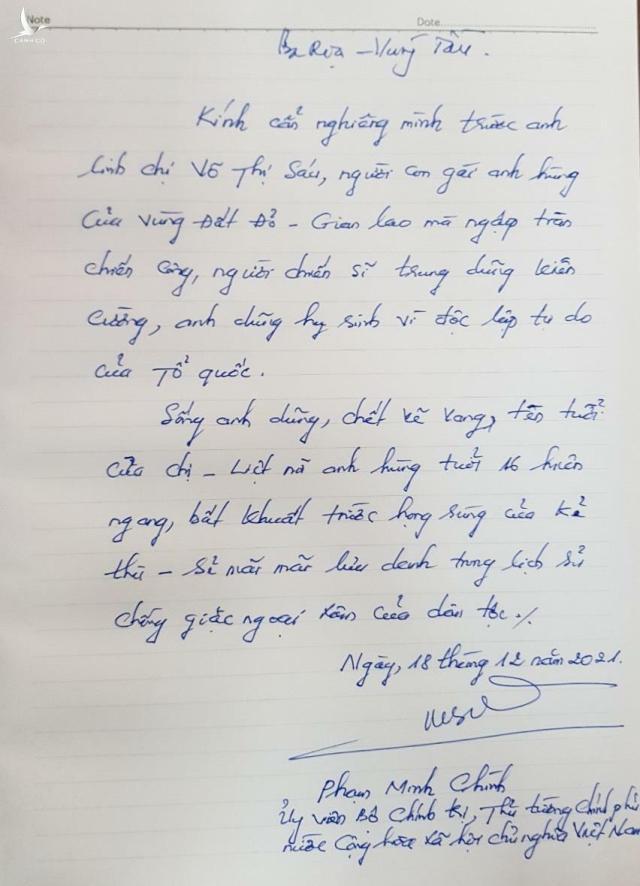 Note
Date
CANH CO
Bà Rịa - Vũng Tàu.
Kính cẩn nghiêng mình trước anh
linh chị Võ Thị Sáu, người con gái anh hùng
của vùng Đất Đỏ - Gian lao mà ngập tràn
chiến công, người chiến sĩ trung dũng kiên
cường, anh dũng hy sinh vì độc lập tự do
của Tổ quốc.
Sống anh dũng, chết vẻ vang, tên tuổi
của chị - Liệt nữ anh hùng tuổi 16 hiên
ngang, bất khuất trước họng súng của kẻ
thù - Sẽ mãi mãi lưu danh trong lịch sử
chống giặc ngoại xâm của dân tộc ./.
Ngày, 18 tháng 12 năm 2021.
Phạm Minh Chính
Ủy viên Bộ Chính trị, Thủ tướng Chính phủ
nước Cộng hòa xã hội chủ nghĩa Việt Nam